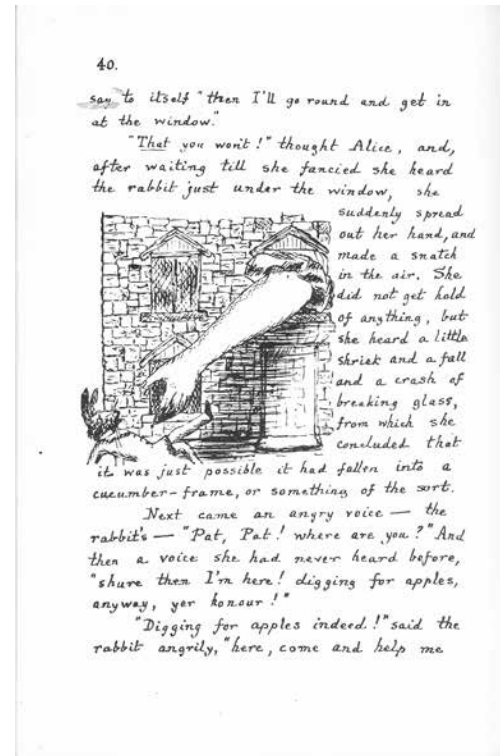 40.
say to itself "then I'll go round and get in
at the window."
"That you won't!" thought Alice, and,
after waiting till she fancied she heard
the rabbit just under the window, she
suddenly spread
out her hand, and
made a snatch
in the air. She
did not get hold
of anything, but
she heard a little
shriek and a fall
and a crash of
breaking glass,
from which she
concluded that
it was just possible it had fallen into a
cucumber-frame, or something of the sort.
Next came an angry voice — the
rabbit's — "Pat, Pat! where are you?" And
then a voice she had never heard before,
"shure then I'm here! digging for apples,
anyway, yer honour!"
"Digging for apples indeed!" said the
rabbit angrily, "here, come and help me